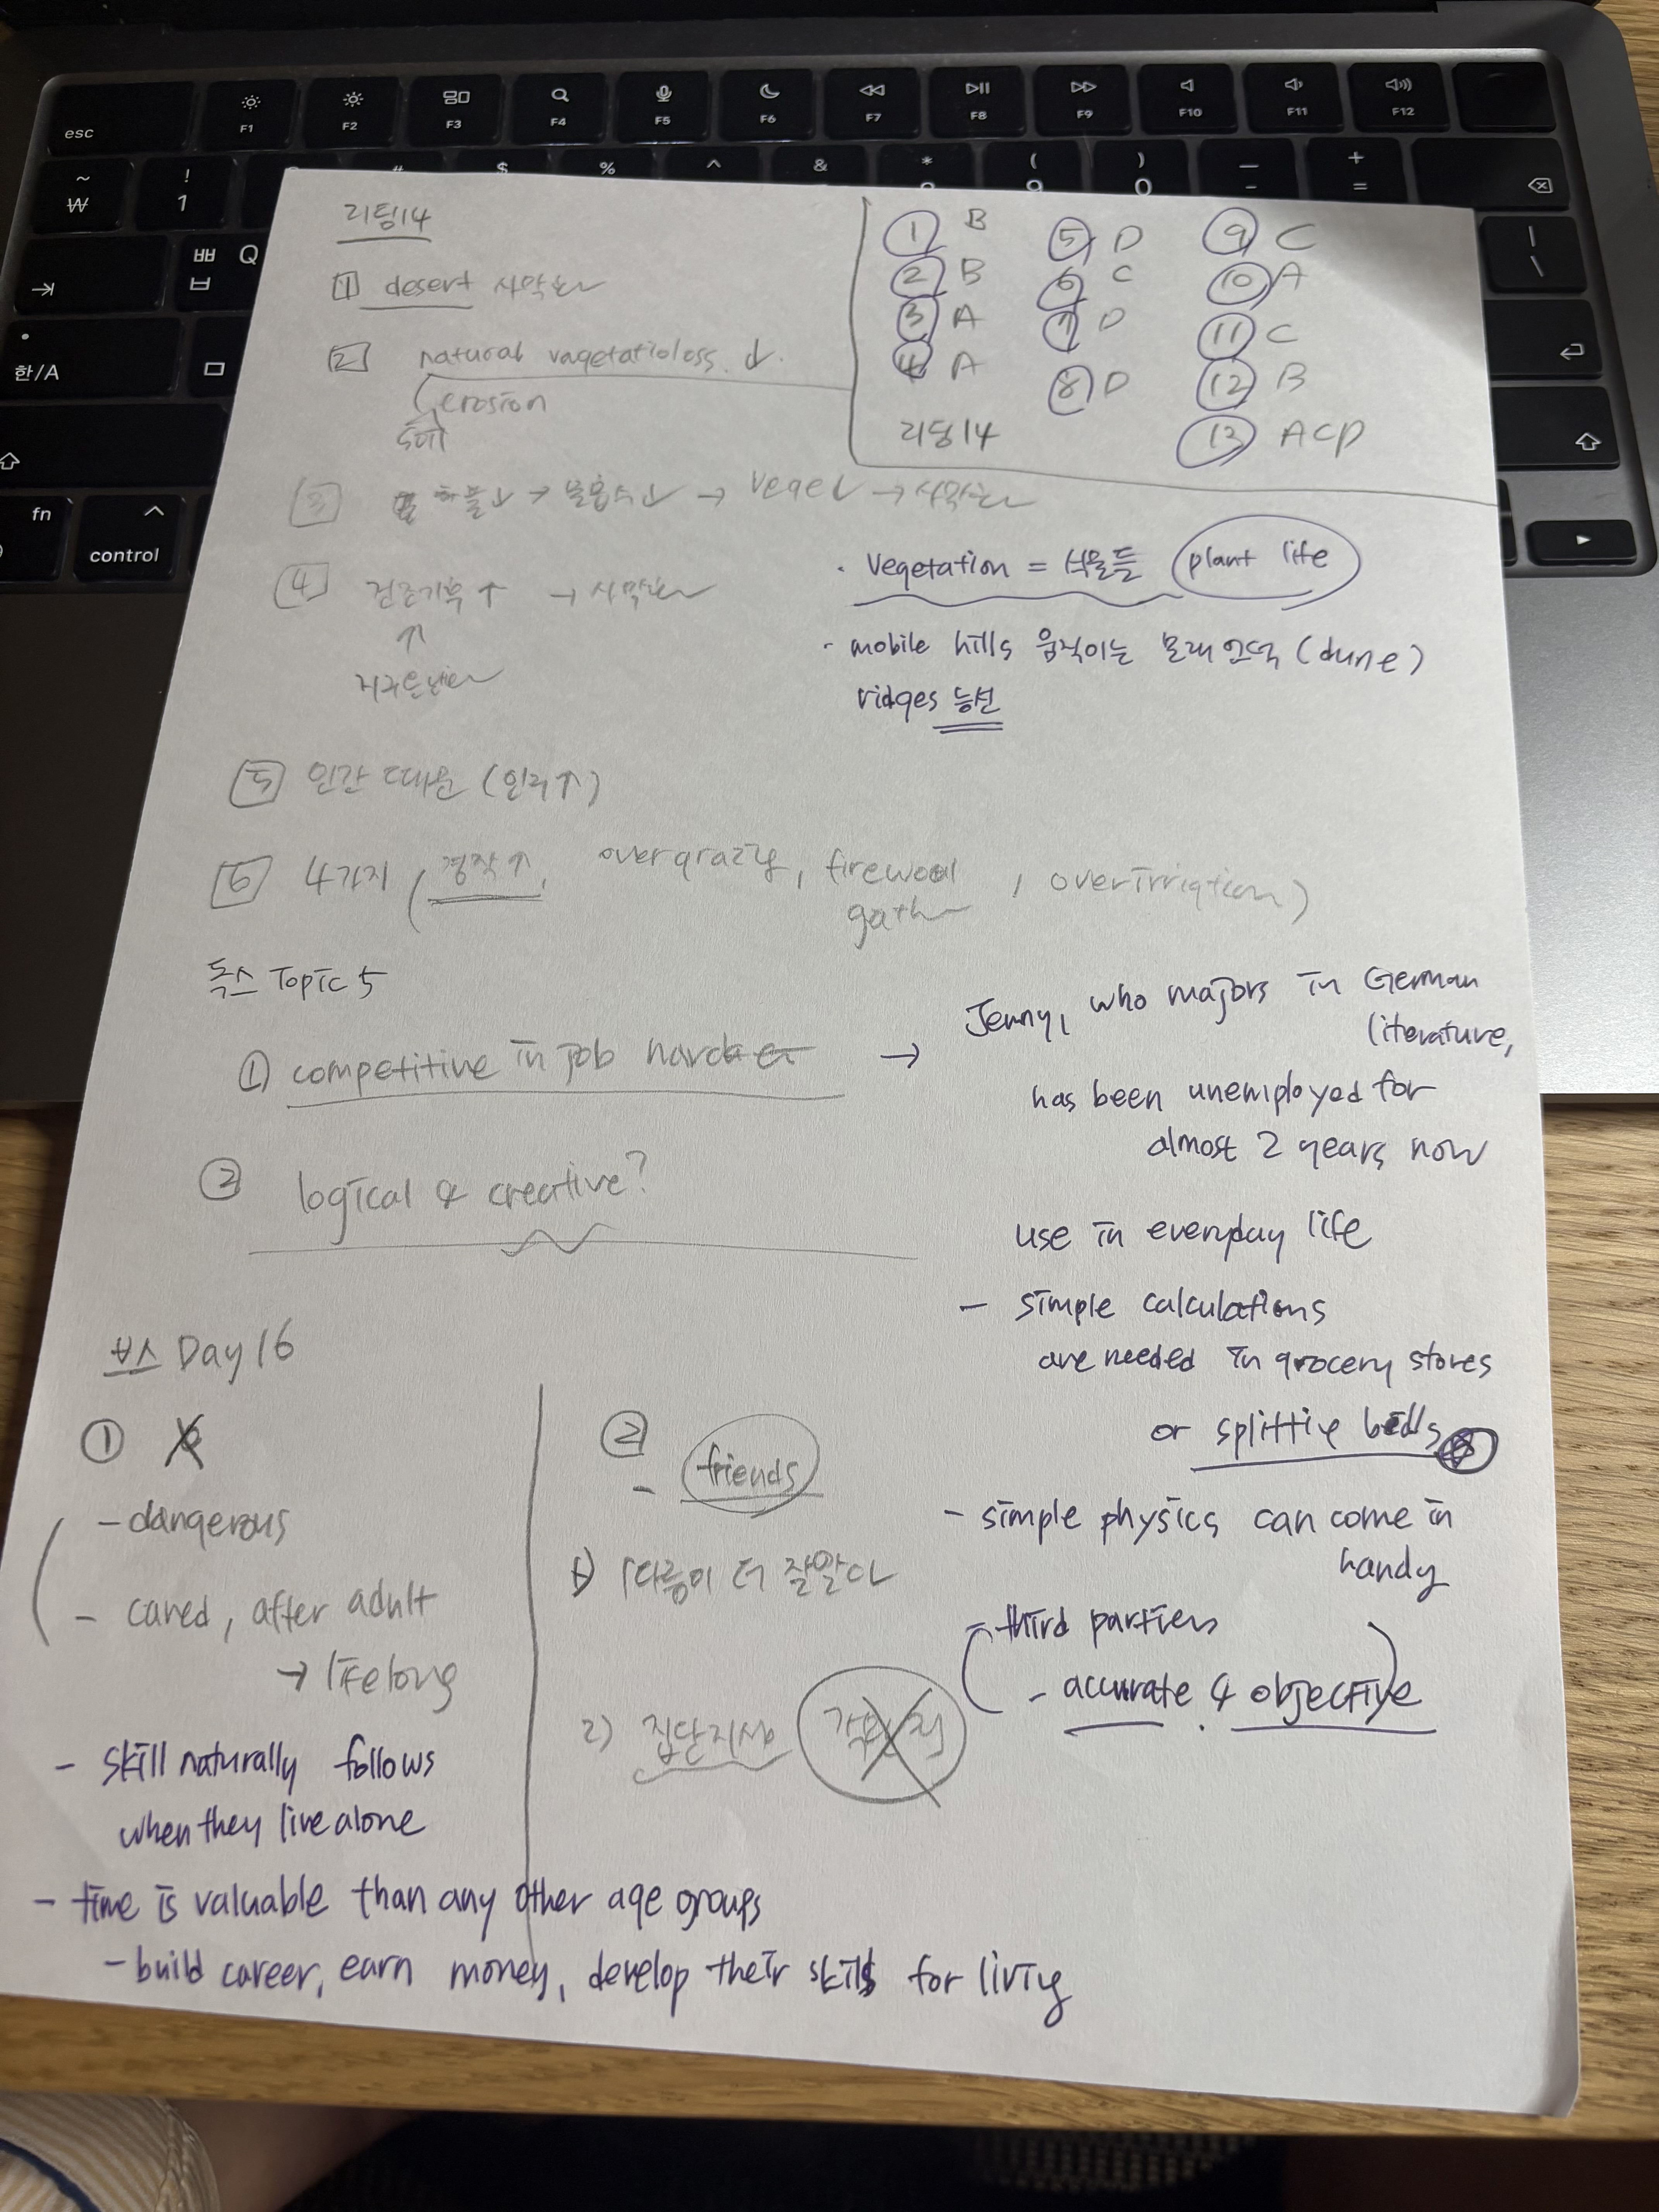 esc
F1
F2
F3
F4
F5
F6
F7
F8
F9
F10
F11
F12
~
₩
!
1
#
$
%
^
&
*
(
9
)
0
—
-
+
=
ㅃ Q
ㅂ
한/A
fn
control
리딩14
1 desert 사막화
2 natural vagetatioloss ↓.
erosion
3 하물↓ → 물흡수↓ → vege↓ → 사막화
4 건조기후↑ → 사막화
↑
지구온난화
5 인간 때문 (인구↑)
6 4가지 (경작↑, overgrazing, firewood gath, overirrigation)
① B
② B
③ A
④ A
⑤ D
⑥ C
⑦ D
⑧ D
⑨ C
⑩ A
⑪ C
⑫ B
⑬ ACD
리딩14
· vegetation = 식물들 plant life
· mobile hills 움직이는 모래언덕 (dune)
ridges 능선
독스 Topic 5
① competitive in job
② logical & creative?
→ Jenny, who majors in German
literature,
has been unemployed for
almost 2 years now
use in everyday life
- simple calculations
are needed in grocery stores
or splitting bills
- simple physics can come in
handy
- third parties
- accurate & objective
브스 Day 16
①
- dangerous
- cared, after adult
→ lifelong
- skill naturally follows
when they live alone
- time is valuable than any other age groups
- build career, earn money, develop their skills for living
②
- friends
1) 더 잘알다
2) 집단지성